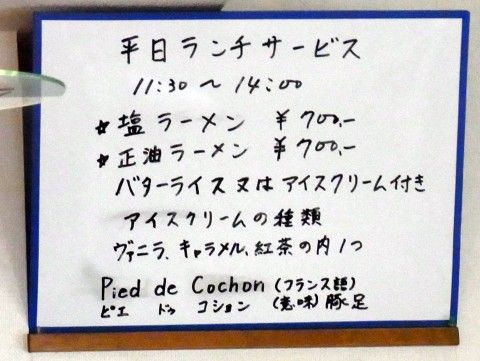 平日ランチサービス
11:30～14:00
☆塩ラーメン ¥700.-
☆正油ラーメン ¥700.-
バターライス又はアイスクリーム付き
アイスクリームの種類
ヴァニラ、キャラメル、紅茶の内1つ
Pied de Cochon (フランス語)
ピエ ドゥ コション (意味) 豚足